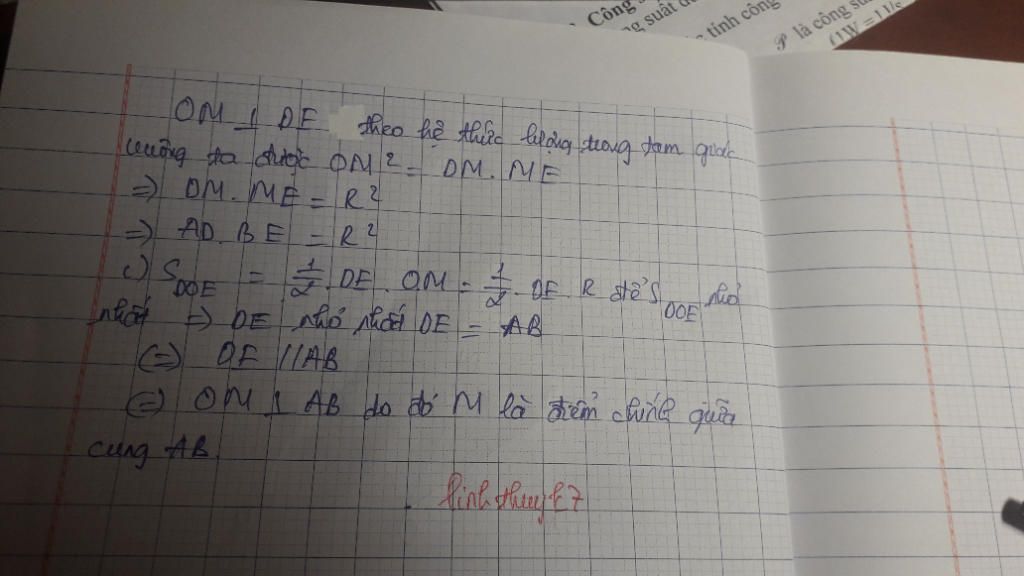 Công s
ng suất đ
tính công
𝒫 là công suấ
(1W = 1J/s
OM ⊥ DE theo hệ thức lượng trong tam giác
vuông ta được OM² = DM. ME
=> DM. ME = R²
=> AD. BE = R²
c) S_DOE = 1/2 . DE. OM = 1/2. DE. R để S_DOE nhỏ
nhất => DE nhỏ nhất DE = AB
<=> DE // AB
<=> OM ⊥ AB do đó M là điểm chính giữa
cung AB.
linh thuy